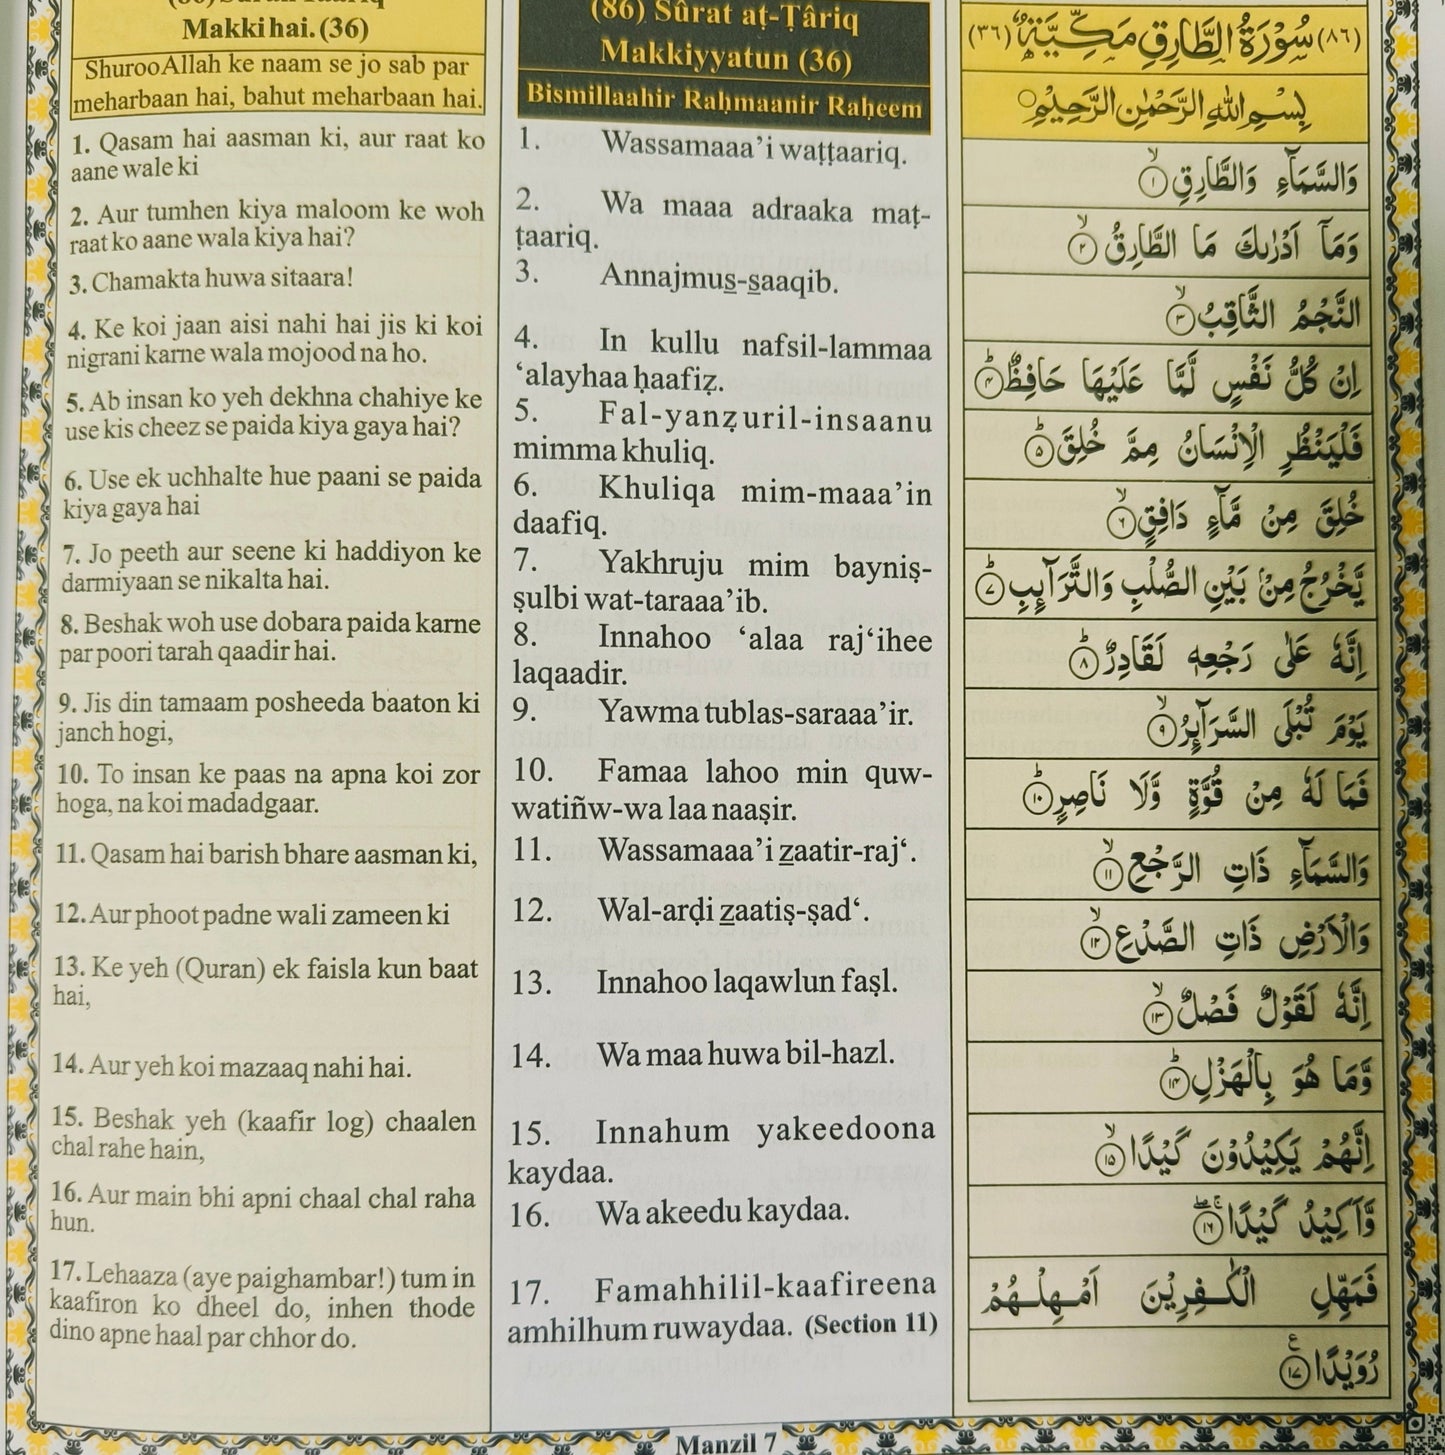 Makki hai. (36)
Shuroo Allah ke naam se jo sab par
meharbaan hai, bahut meharbaan hai.
1. Qasam hai aasman ki, aur raat ko
aane wale ki
2. Aur tumhen kiya maloom ke woh
raat ko aane wala kiya hai?
3. Chamakta huwa sitaara!
4. Ke koi jaan aisi nahi hai jis ki koi
nigrani karne wala mojood na ho.
5. Ab insan ko yeh dekhna chahiye ke
use kis cheez se paida kiya gaya hai?
6. Use ek uchhalte hue paani se paida
kiya gaya hai
7. Jo peeth aur seene ki haddiyon ke
darmiyaan se nikalta hai.
8. Beshak woh use dobara paida karne
par poori tarah qaadir hai.
9. Jis din tamaam posheeda baaton ki
janch hogi,
10. To insan ke paas na apna koi zor
hoga, na koi madadgaar.
11. Qasam hai barish bhare aasman ki,
12. Aur phoot padne wali zameen ki
13. Ke yeh (Quran) ek faisla kun baat
hai,
14. Aur yeh koi mazaaq nahi hai.
15. Beshak yeh (kaafir log) chaalen
chal rahe hain,
16. Aur main bhi apni chaal chal raha
hun.
17. Lehaaza (aye paighambar!) tum in
kaafiron ko dheel do, inhen thode
dino apne haal par chhor do.
(86) Sûrat aṭ-Ṭâriq
Makkiyyatun (36)
Bismillaahir Raḥmaanir Raḥeem
1. Wassamaaa’i waṭṭaariq.
2. Wa maaa adraaka maṭ-
ṭaariq.
3. Annajmus̱-s̱aaqib.
4. In kullu nafsil-lammaa
‘alayhaa ḥaafiẓ.
5. Fal-yanẓuril-insaanu
mimma khuliq.
6. Khuliqa mim-maaa’in
daafiq.
7. Yakhruju mim bayniṣ-
ṣulbi wat-taraaa’ib.
8. Innahoo ‘alaa raj‘ihee
laqaadir.
9. Yawma tublas-saraaa’ir.
10. Famaa lahoo min quw-
watiñw-wa laa naaṣir.
11. Wassamaaa’i ẕaatir-raj‘.
12. Wal-arḍi ẕaatiṣ-ṣad‘.
13. Innahoo laqawlun faṣl.
14. Wa maa huwa bil-hazl.
15. Innahum yakeedoona
kaydaa.
16. Wa akeedu kaydaa.
17. Famahhilil-kaafireena
amhilhum ruwaydaa. (Section 11)
(٨٦) سُوْرَةُ الطَّارِقِ مَكِّيَّةٌ (٣٦)
بِسْمِ اللّٰهِ الرَّحْمٰنِ الرَّحِيْمِ
وَالسَّمَآءِ وَالطَّارِقِ ۙ‏﴿۱﴾
وَمَاۤ اَدْرٰىكَ مَا الطَّارِقُ ۙ‏﴿۲﴾
النَّجْمُ الثَّاقِبُ ۙ‏﴿۳﴾
اِنْ كُلُّ نَفْسٍ لَّمَّا عَلَيْهَا حَافِظٌ ؕ‏﴿۴﴾
فَلْيَنْظُرِ الْاِنْسَانُ مِمَّ خُلِقَ ؕ‏﴿۵﴾
خُلِقَ مِنْ مَّآءٍ دَافِقٍ ۙ‏﴿۶﴾
يَّخْرُجُ مِنْۢ بَيْنِ الصُّلْبِ وَالتَّرَآئِبِ ؕ‏﴿۷﴾
اِنَّهٗ عَلٰى رَجْعِهٖ لَقَادِرٌ ؕ‏﴿۸﴾
يَوْمَ تُبْلَى السَّرَآئِرُ ۙ‏﴿۹﴾
فَمَا لَهٗ مِنْ قُوَّةٍ وَّلَا نَاصِرٍ ؕ‏﴿۱۰﴾
وَالسَّمَآءِ ذَاتِ الرَّجْعِ ۙ‏﴿۱۱﴾
وَالْاَرْضِ ذَاتِ الصَّدْعِ ۙ‏﴿۱۲﴾
اِنَّهٗ لَقَوْلٌ فَصْلٌ ۙ‏﴿۱۳﴾
وَّمَا هُوَ بِالْهَزْلِ ؕ‏﴿۱۴﴾
اِنَّهُمْ يَكِيْدُوْنَ كَيْدًا ۙ‏﴿۱۵﴾
وَّاَكِيْدُ كَيْدًا ۚۖ‏﴿۱۶﴾
فَمَهِّلِ الْكٰفِرِيْنَ اَمْهِلْهُمْ
رُوَيْدًا ‏﴿۱۷﴾
Manzil 7